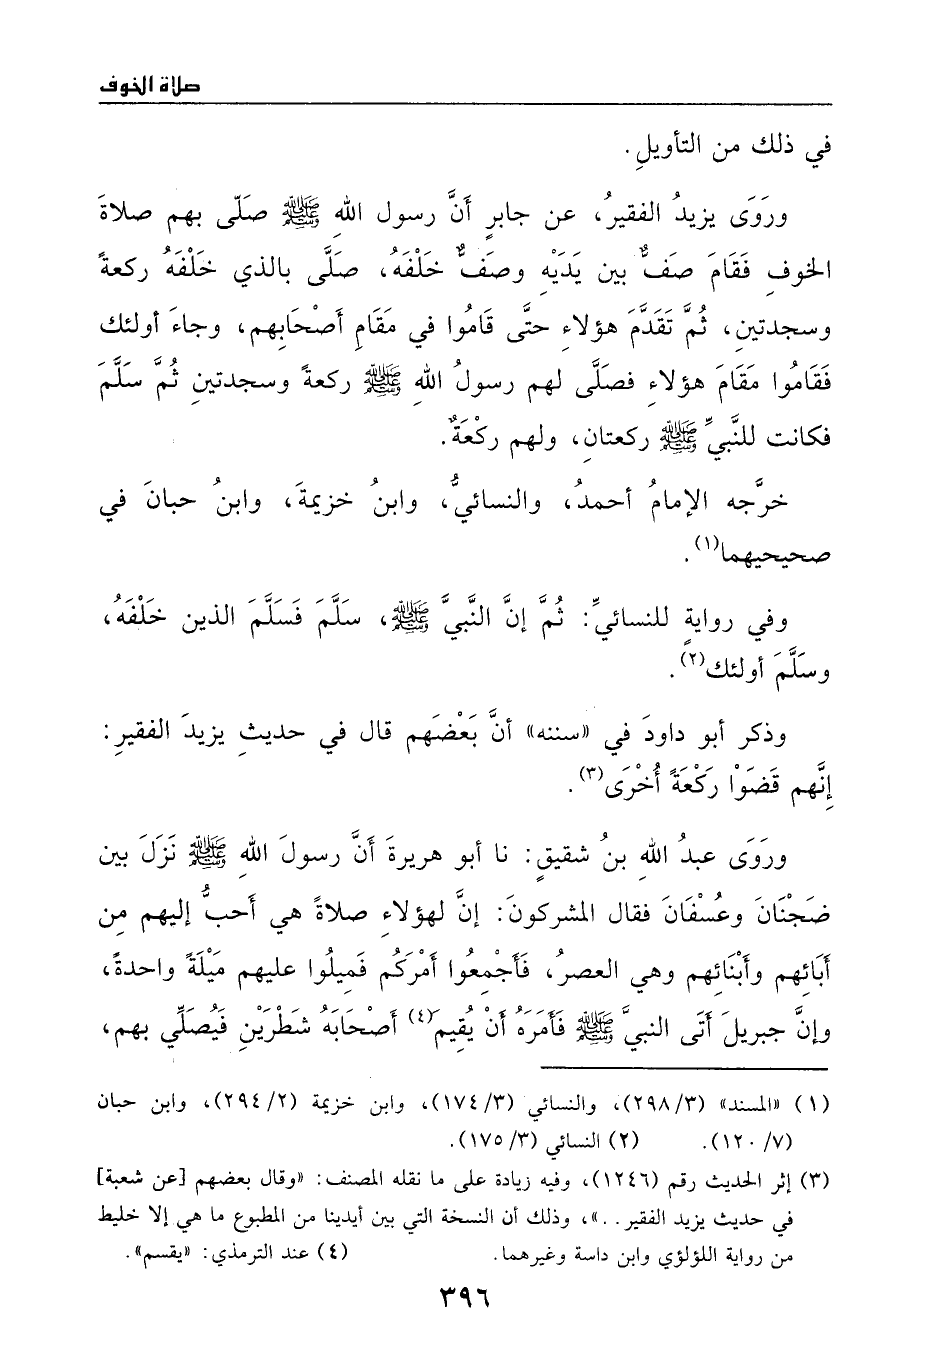 صلاة الخوف
في ذلك من التأويلِ.
ورَوَى يزيدُ الفقيرُ، عن جابرٍ أَنَّ رسول اللهِ ﷺ صَلّى بهم صلاةَ
الخوفِ فَقَامَ صَفٌّ بين يَدَيْهِ وصَفٌّ خَلْفَهُ، صَلَّى بالذي خَلْفَهُ ركعةً
وسجدتينِ، ثُمَّ تَقَدَّمَ هؤلاءِ حتَّى قَامُوا في مَقَامِ أصْحَابِهم، وجاءَ أولئك
فَقَامُوا مَقَامَ هؤلاءِ فصَلَّى لهم رسولُ اللهِ ﷺ ركعةً وسجدتينِ ثُمَّ سَلَّمَ
فكانت للنَّبيِّ ﷺ ركعتانِ، ولهم ركْعَةٌ.
خرَّجه الإمامُ أحمدُ، والنسائيُّ، وابنُ خزيمةَ، وابنُ حبانَ في
صحيحيهما(١).
وفي روايةٍ للنسائيِّ: ثُمَّ إنَّ النَّبيَّ ﷺ، سَلَّمَ فَسَلَّمَ الذين خَلْفَهُ،
وسَلَّمَ أولئك(٢).
وذكر أبو داودَ في «سننه» أنَّ بَعْضَهم قال في حديثِ يزيدَ الفقيرِ:
إنَّهم قَضَوْا رَكْعَةً أُخْرَى(٣).
ورَوَى عبدُ اللهِ بنُ شقيقٍ: نا أبو هريرةَ أَنَّ رسولَ اللهِ ﷺ نَزَلَ بين
ضَجْنَانَ وعُسْفَانَ فقال المشركونَ: إنَّ لهؤلاءِ صلاةً هي أَحبُّ إليهم مِن
آبَائِهم وأبْنَائِهم وهي العصرُ، فَأَجْمِعُوا أمْرَكُم فَمِيلُوا عليهم مَيْلَةً واحدةً،
وإنَّ جبريلَ أتَى النبيَّ ﷺ فَأَمَرَهُ أنْ يُقِيمَ(٤) أصْحَابَهُ شَطْرَيْنِ فَيُصَلِّي بهم،
(١) «المسند» (٣/ ٢٩٨)، والنسائي (٣/ ١٧٤)، وابن خزيمة (٢/ ٢٩٤)، وابن حبان
(٧/ ١٢٠). (٢) النسائي (٣/ ١٧٥).
(٣) إثر الحديث رقم (١٢٤٦)، وفيه زيادة على ما نقله المصنف: «وقال بعضهم [عن شعبة]
في حديث يزيد الفقير..»، وذلك أن النسخة التي بين أيدينا من المطبوع ما هي إلا خليط
من رواية اللؤلؤي وابن داسة وغيرهما. (٤) عند الترمذي: «يقسم».
٣٩٦